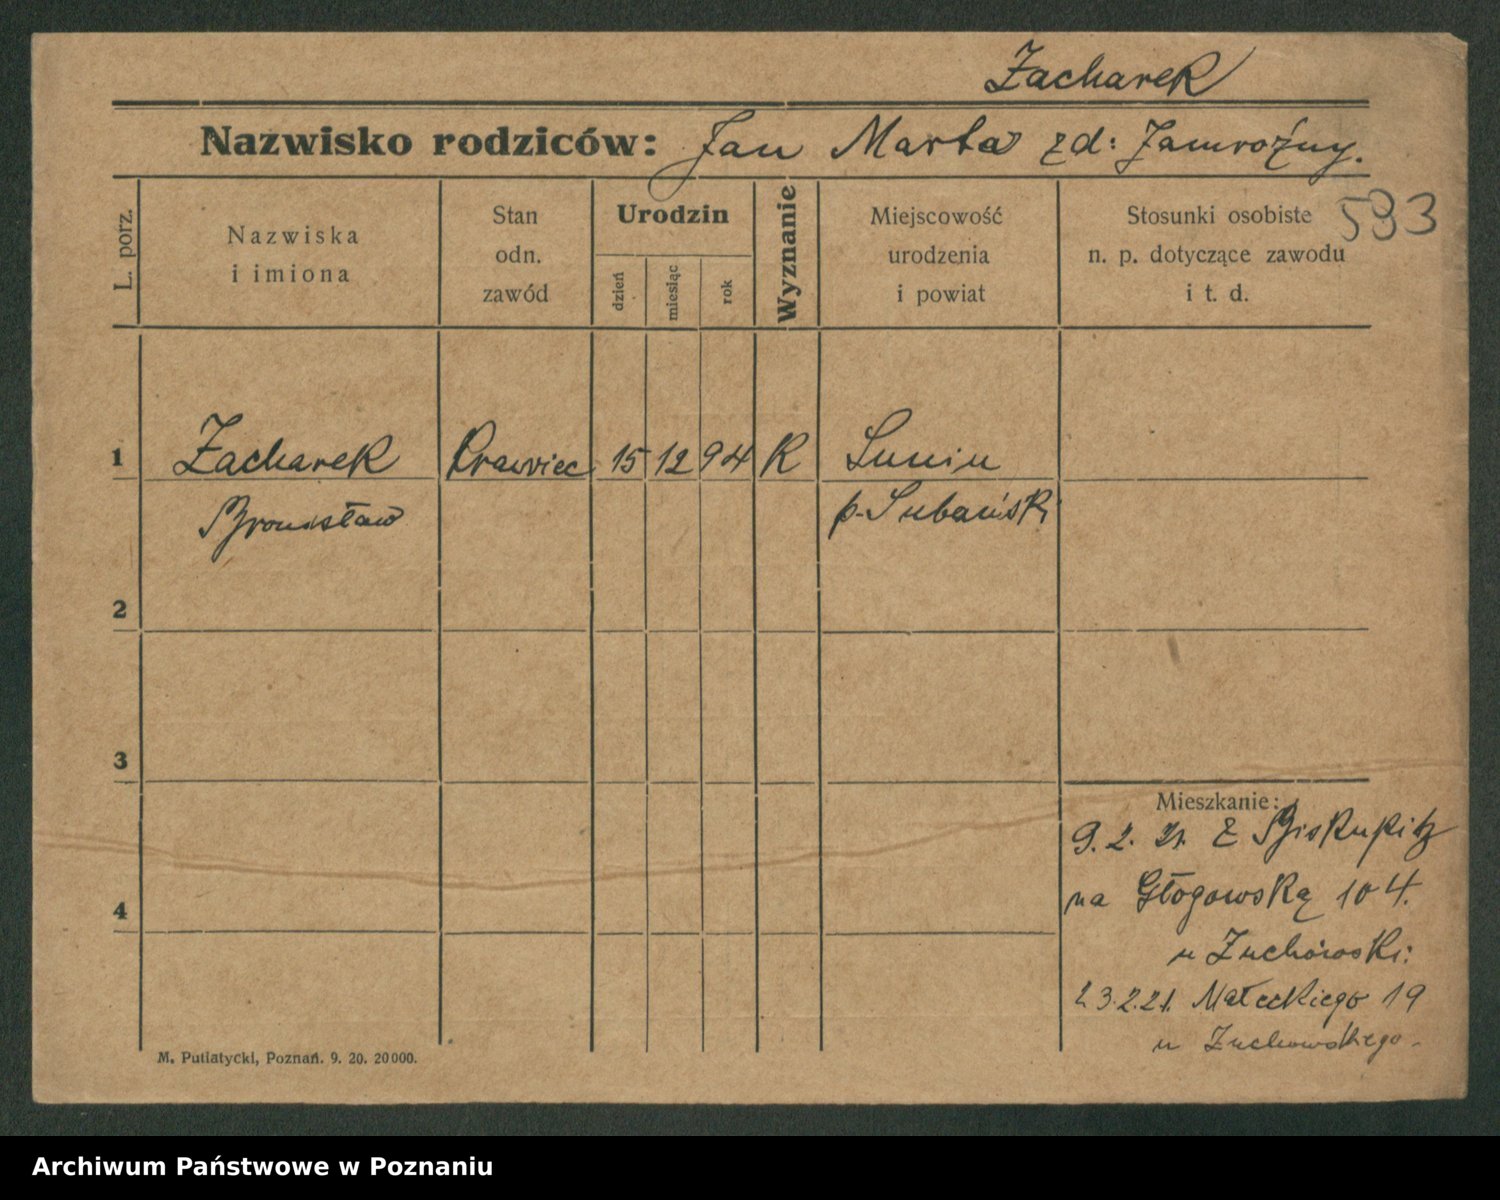 Zacharek
Nazwisko rodziców: Jan Marta zd: Jamroźny.
533
L. porz.
Nazwiska
i imiona
Stan
odn.
zawód
Urodzin
dzień
miesiąc
rok
Wyznanie
Miejscowość
urodzenia
i powiat
Stosunki osobiste
n. p. dotyczące zawodu
i t. d.
1 Zacharek Krawiec 15 12 94 K Sunin
Bronisław p. Lubański
2
3
4
Mieszkanie:
9. 2. 21. z Biskupitz
na Głogowską 104.
u Zuchowski:
23.2.21. Małeckiego 19
u Zuchowskiego.
M. Putiatycki, Poznań. 9. 20. 20000.
Archiwum Państwowe w Poznaniu